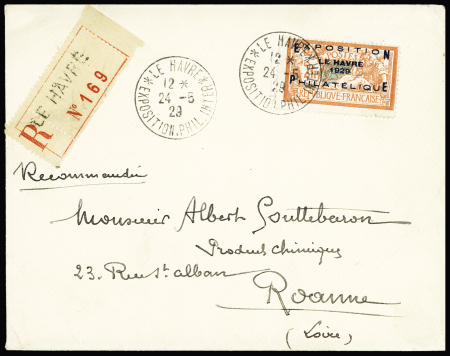 LE HAVRE
R N° 169
*LE HAVRE*
12 *
24 - 5
29
EXPOSITION.PHIL
*LE HAVRE
12 *
24 - 5
29
EXPOSITION.PHIL
EXPOSITION
LE HAVRE
1929
PHILATÉLIQUE
RÉPUBLIQUE FRANÇAISE
Recommandée
Monsieur Albert Gouttebaron
Produits chimiques
23. Rue St alban
Roanne
(Loire)